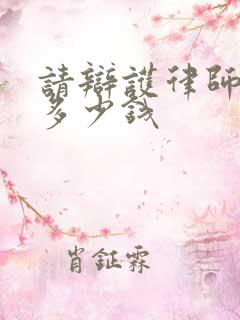 請辯護律師
多少錢
肖鉦霖